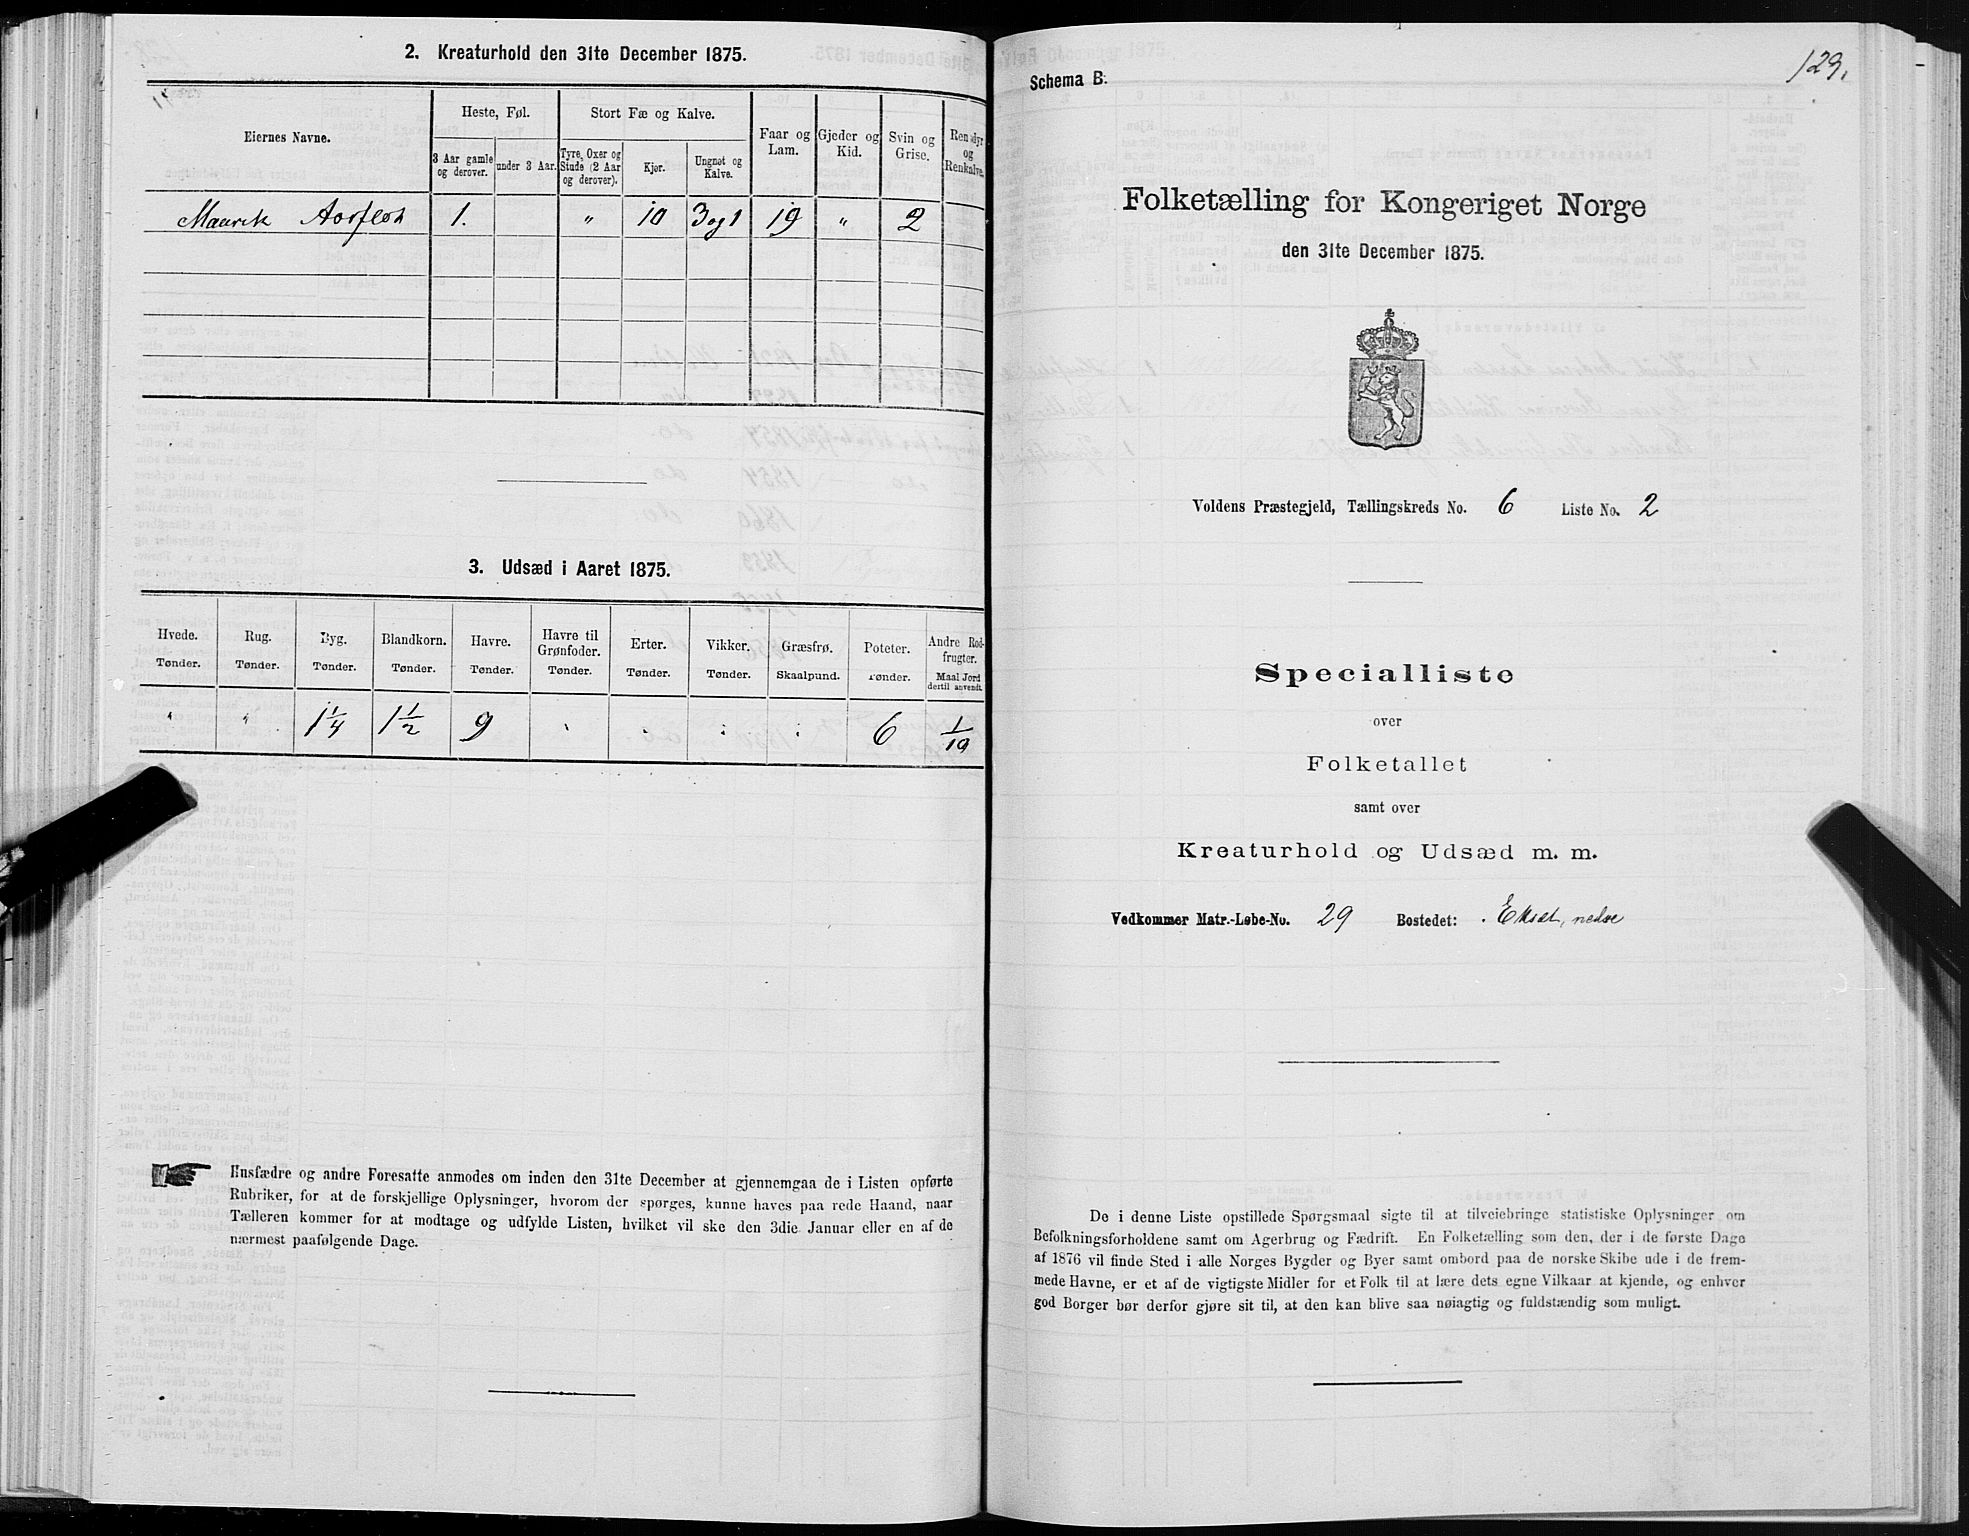 2. Kreaturhold den 31te December 1875.
Eiernes Navne.
Heste, Føl.
Stort Fæ og Kalve.
Faar og Lam.
Gjeder og Kid.
Svin og Grise.
Rensdyr og Renkalve.
3 Aar gamle og derover.
under 3 Aar.
Tyre, Oxer og Stude (2 Aar og derover).
Kjør.
Ungnøt og Kalve.
Maurik Aasflot 1. " 10 3 og 1 19 " 2
3. Udsæd i Aaret 1875.
Hvede. Rug. Byg. Blandkorn. Havre. Havre til Grønfoder. Erter. Vikker. Græsfrø. Poteter. Andre Rodfrugter.
Tønder. Tønder. Tønder. Tønder. Tønder. Tønder. Tønder. Tønder. Skaalpund. Tønder. Maal Jord dertil anvendt.
" " 1 1/4 1 1/2 9 6 1/10
Husfædre og andre Foresatte anmodes om inden den 31te December at gjennemgaa de i Listen opførte
Rubriker, for at de forskjellige Oplysninger, hvorom der spørges, kunne haves paa rede Haand, naar
Tælleren kommer for at modtage og udfylde Listen, hvilket vil ske den 3die Januar eller en af de
nærmest paafølgende Dage.
129.
Schema B.
Folketælling for Kongeriget Norge
den 31te December 1875.
Voldens Præstegjeld, Tællingskreds No. 6 Liste No. 2
Specialliste
over
Folketallet
samt over
Kreaturhold og Udsæd m. m.
Vedkommer Matr.-Løbe-No. 29 Bostedet: Ekset, nedre
De i denne Liste opstillede Spørgsmaal sigte til at tilveiebringe statistiske Oplysninger om
Befolkningsforholdene samt om Agerbrug og Fædrift. En Folketælling som den, der i de første Dage
af 1876 vil finde Sted i alle Norges Bygder og Byer samt ombord paa de norske Skibe ude i de frem-
mede Havne, er et af de vigtigste Midler for et Folk til at lære dets egne Vilkaar at kjende, og enhver
god Borger bør derfor gjøre sit til, at den kan blive saa nøiagtig og fuldstændig som muligt.